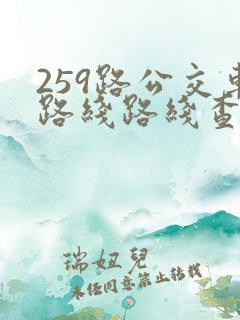 259路公交车
路线路线查
瑞妞儿
未经同意禁止转载